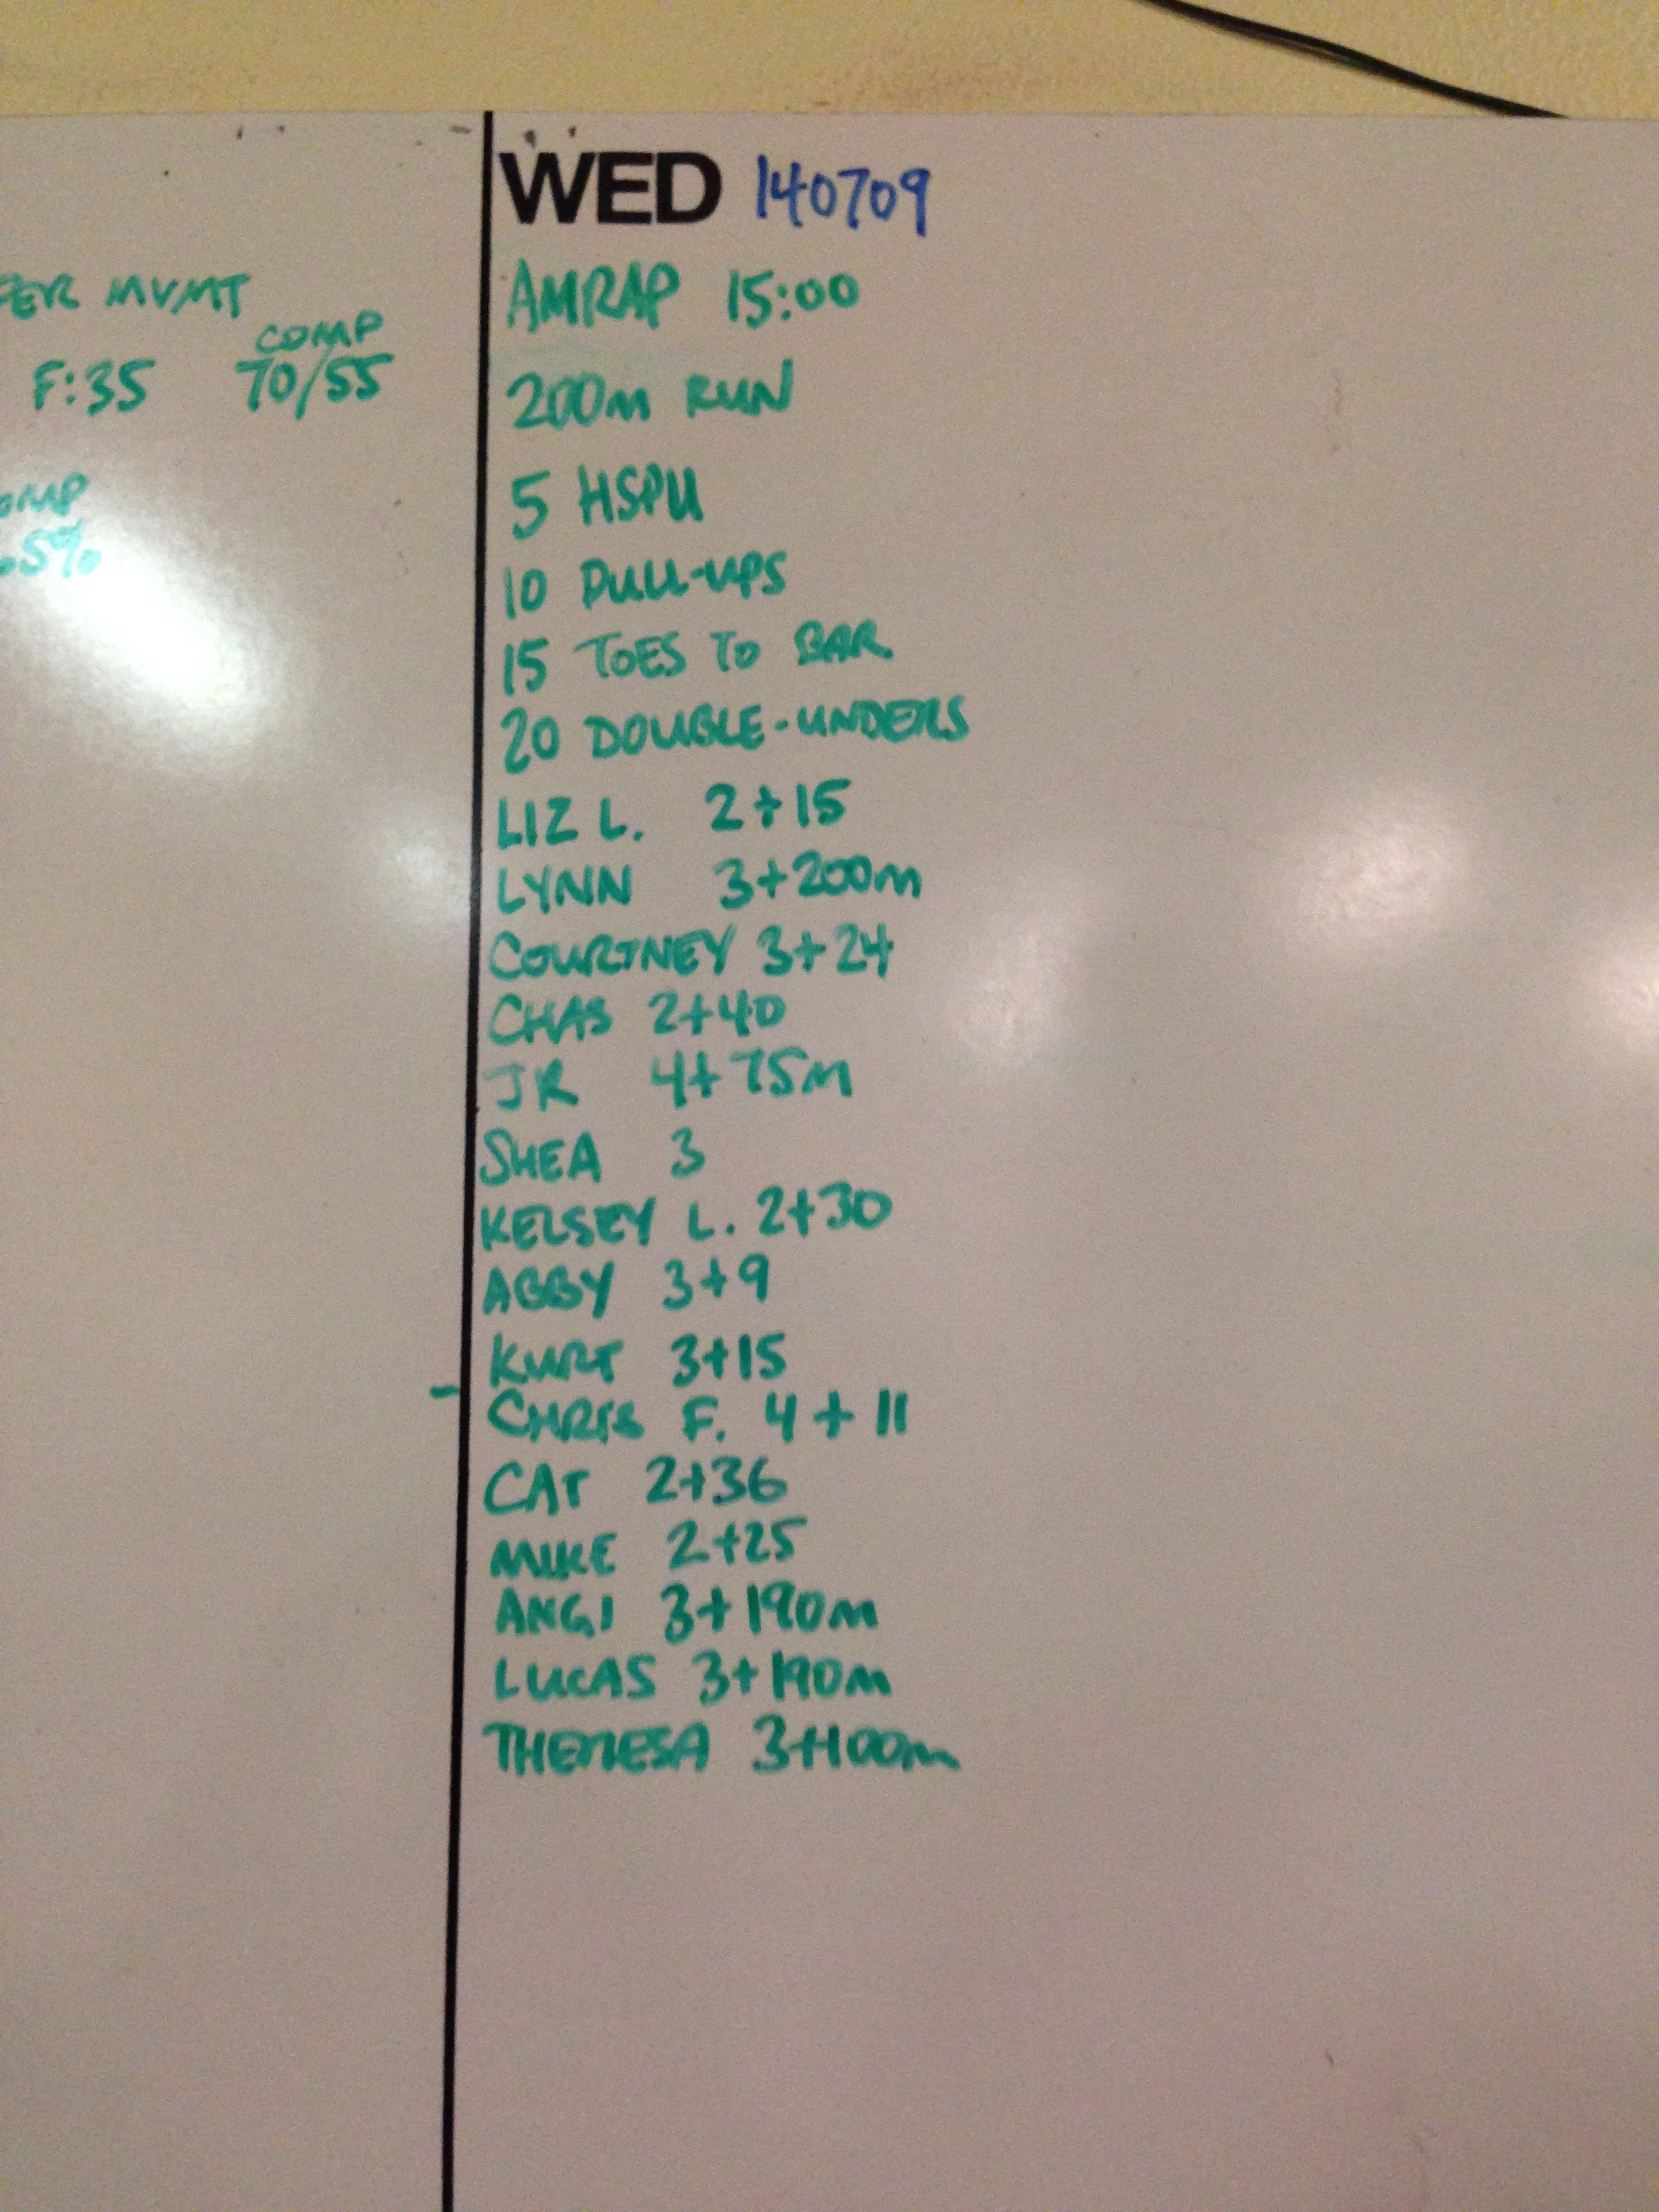 PER MVMT
COMP
F:35 70/55
WED 140709
AMRAP 15:00
200m RUN
5 HSPU
10 PULL-UPS
15 TOES TO BAR
20 DOUBLE-UNDERS
LIZ L. 2+15
LYNN 3+200m
COURTNEY 3+24
CHAS 2+40
JR 4+75m
SHEA 3
KELSEY L. 2+30
ABBY 3+9
KURT 3+15
CHRIS F. 4+11
CAT 2+36
MIKE 2+25
ANGI 3+190m
LUCAS 3+190m
THERESA 3+100m